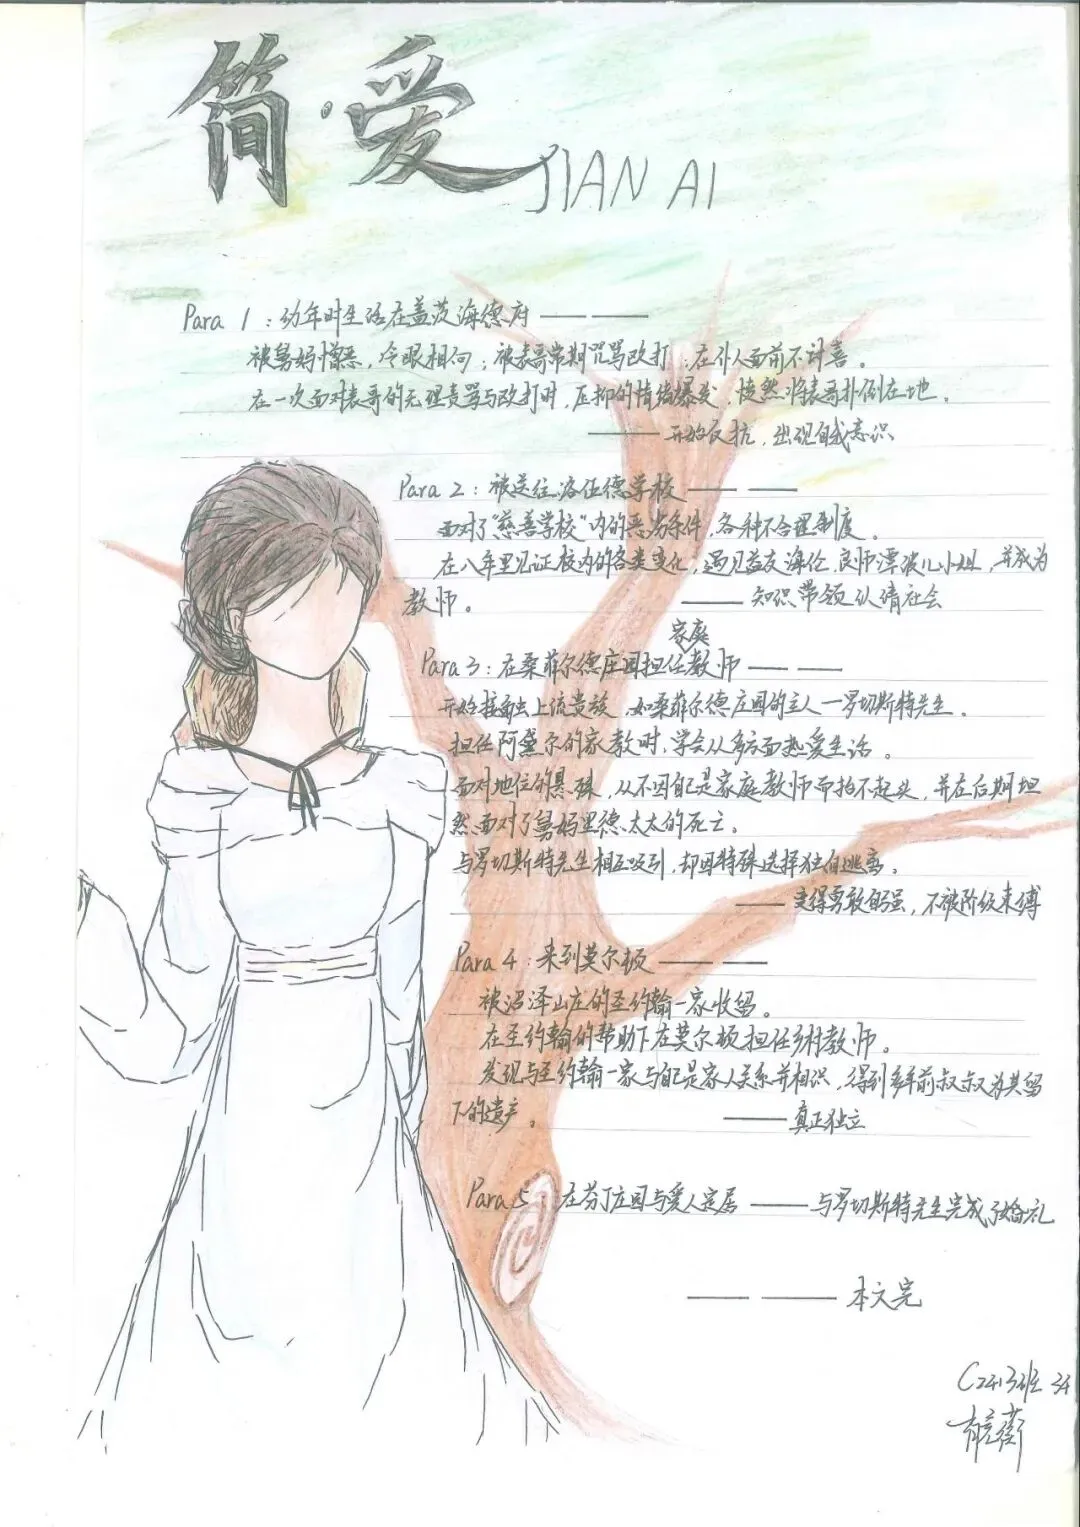 简·爱
JIAN AI
Para 1：幼年时生活在盖茨海德府 — —
被舅妈憎恶，冷眼相向；被表哥常期咒骂改打；在仆人面前不讨喜。
在一次面对表哥的无理责骂与改打时，压抑的情绪爆发，愤然将表哥扑倒在地。
— 开始反抗，出现自我意识
Para 2：被送往洛伍德学校 — —
面对了“慈善学校”内的恶劣条件，各种不合理制度。
在八年里见证校内的各类变化，遇见益友海伦，良师谭波儿小姐，并成为
教师。 — 知识带领认清社会
家庭
Para 3：在桑菲尔德庄园担任教师 — —
开始接触上流贵族，如桑菲尔德庄园的主人一罗切斯特先生。
担任阿黛尔的家教时，学会从多方面热爱生活。
面对地位的悬殊，从不因自己是家庭教师而抬不起头，并在后期坦
然面对了舅妈里德太太的死亡。
与罗切斯特先生相互吸引，却因特殊选择独自逃离。
— 变得勇敢自强，不被阶级束缚
Para 4：来到莫尔顿 — —
被沼泽山庄的圣约翰一家收留。
在圣约翰的帮助下在莫尔顿担任乡村教师。
发现与圣约翰一家与自己是家人关系并相识，得到多年前叔叔为其留
下的遗产。 — 真正独立
Para 5 在芬丁庄园与爱人定居 — 与罗切斯特先生完成了婚礼
— — 本文完
C2413班 34